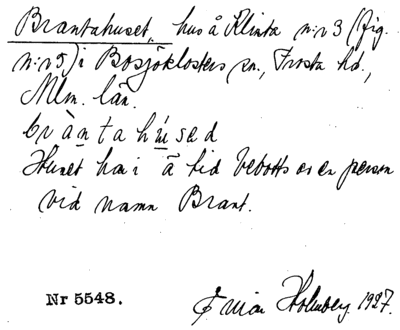 Brantahuset, hus å Klinta n:r 3 (fig.
n:r 5) i Bosjöklosters sn., Frosta hd.,
Mlm. län.
bràntahúsəd
Huset har i ä tid bebotts av en person
vid namn Brant.
Nr 5548.
Holmberg. 1927.